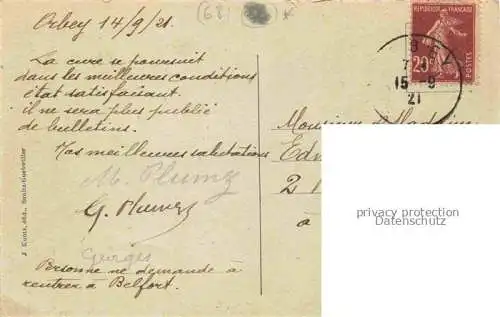 Orbey 14/9/21.
(68)
REPUBLIQUE FRANÇAISE
20c
POSTES
BEY
15-9
21
La cure se poursuit
dans les meilleures conditions
état satisfaisant.
il ne sera plus publié
de bulletins.
Mes meilleures salutations
M.
G.
Georges
Personne ne demande à
rentrer à Belfort.
Monsieur
2
à
J. édit. Soultz-Guebwiller
privacy protection
Datenschutz